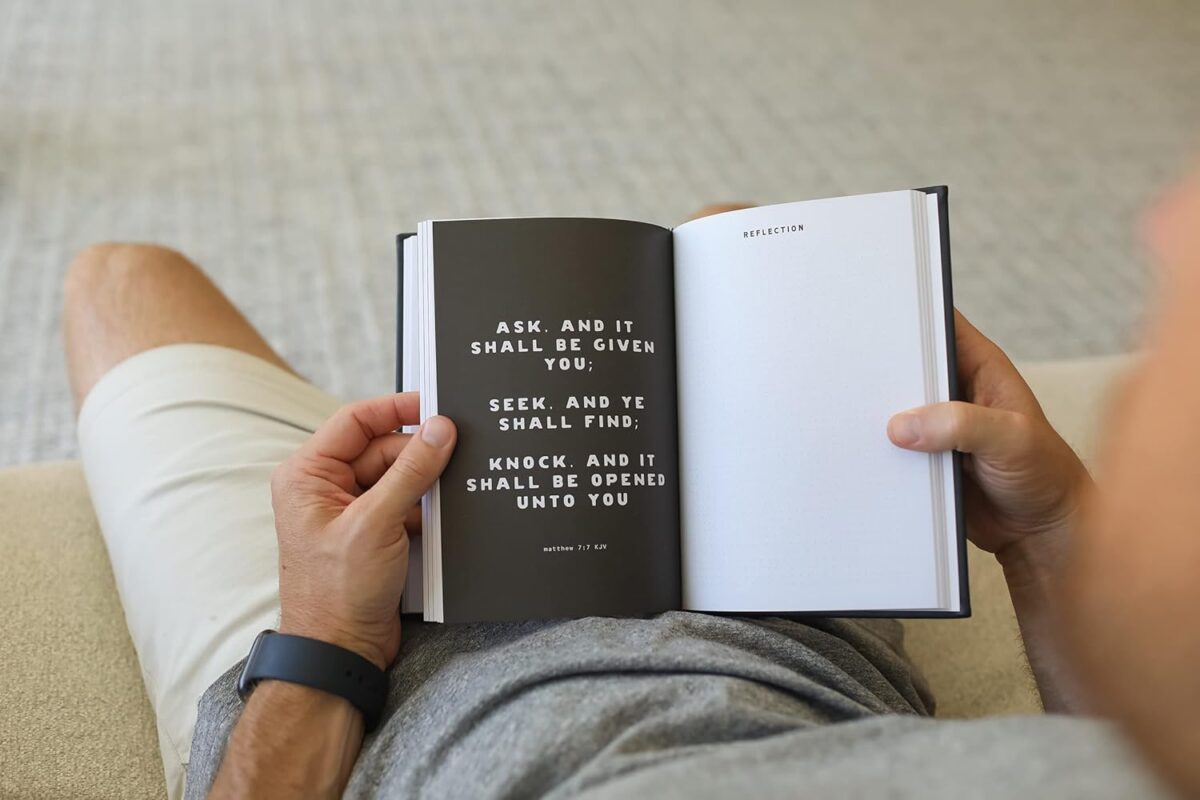 ASK, AND IT
SHALL BE GIVEN
YOU;
SEEK, AND YE
SHALL FIND;
KNOCK, AND IT
SHALL BE OPENED
UNTO YOU
matthew 7:7 KJV
REFLECTION